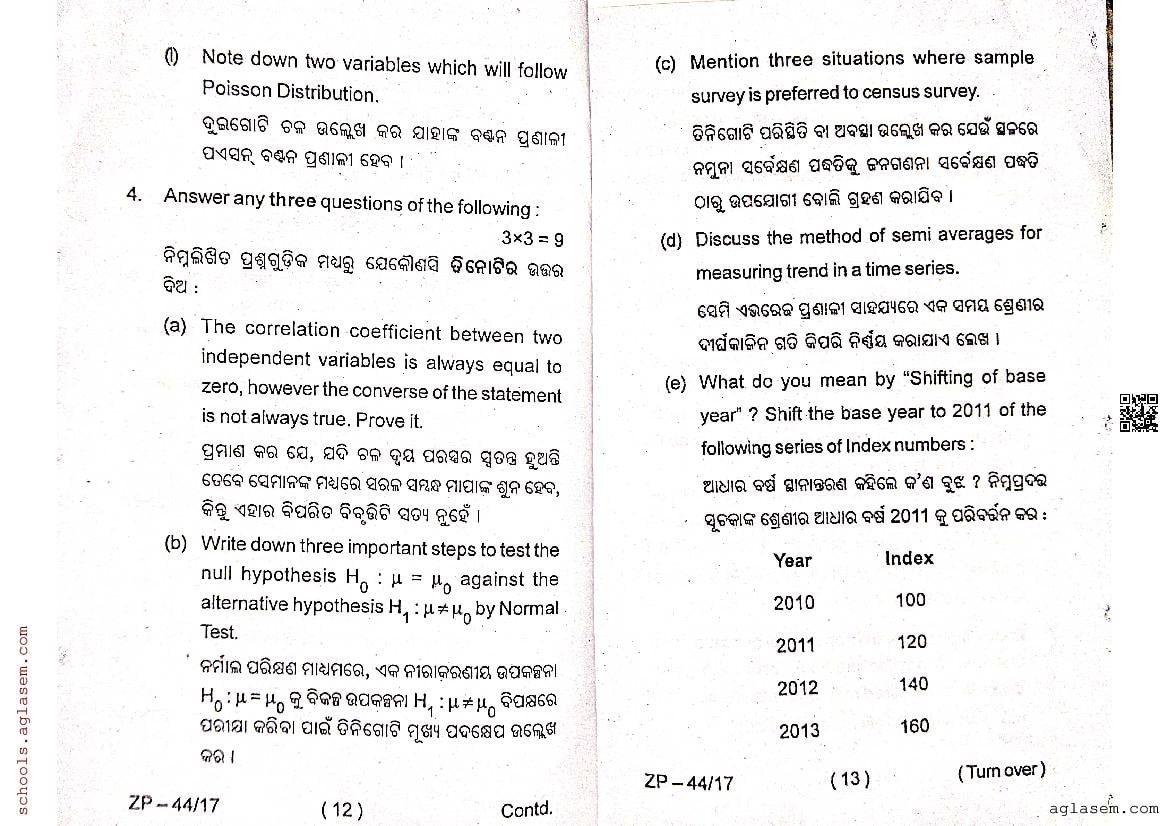 (l) Note down two variables which will follow
Poisson Distribution.
ଦୁଇଗୋଟି ଚଳ ଉଲ୍ଲେଖ କର ଯାହାଙ୍କ ବଣ୍ଟନ ପ୍ରଣାଳୀ
ପଏସନ୍ ବଣ୍ଟନ ପ୍ରଣାଳୀ ହେବ ।
4. Answer any three questions of the following :
3×3 = 9
ନିମ୍ନଲିଖିତ ପ୍ରଶ୍ନଗୁଡ଼ିକ ମଧ୍ୟରୁ ଯେକୌଣସି ତିନୋଟିର ଉତ୍ତର
ଦିଅ :
(a) The correlation coefficient between two
independent variables is always equal to
zero, however the converse of the statement
is not always true. Prove it.
ପ୍ରମାଣ କର ଯେ, ଯଦି ଚଳ ଦ୍ୱୟ ପରସ୍ପର ସ୍ୱତନ୍ତ୍ର ହୁଅନ୍ତି
ତେବେ ସେମାନଙ୍କ ମଧ୍ୟରେ ସରଳ ସମ୍ବନ୍ଧ ମାପାଙ୍କ ଶୂନ ହେବ,
କିନ୍ତୁ ଏହାର ବିପରିତ ବିବୃତ୍ତିଟି ସତ୍ୟ ନୁହେଁ ।
(b) Write down three important steps to test the
null hypothesis H₀ : μ = μ₀ against the
alternative hypothesis H₁ : μ ≠ μ₀ by Normal
Test.
ନର୍ମାଲ ପରିକ୍ଷଣ ମାଧ୍ୟମରେ, ଏକ ନୀରାକରଣୀୟ ଉପକଳ୍ପନା
H₀ : μ = μ₀ କୁ ବିକଳ୍ପ ଉପକଳ୍ପନା H₁ : μ ≠ μ₀ ବିପକ୍ଷରେ
ପରୀକ୍ଷା କରିବା ପାଇଁ ତିନିଗୋଟି ମୁଖ୍ୟ ପଦକ୍ଷେପ ଉଲ୍ଲେଖ
କର ।
ZP – 44/17 (12) Contd.
(c) Mention three situations where sample
survey is preferred to census survey.
ତିନିଗୋଟି ପରିସ୍ଥିତି ବା ଅବସ୍ଥା ଉଲ୍ଲେଖ କର ଯେଉଁ ସ୍ଥଳରେ
ନମୁନା ସର୍ବେକ୍ଷଣ ପଦ୍ଧତିକୁ ଜନଗଣନା ସର୍ବେକ୍ଷଣ ପଦ୍ଧତି
ଠାରୁ ଉପଯୋଗୀ ବୋଲି ଗ୍ରହଣ କରାଯିବ ।
(d) Discuss the method of semi averages for
measuring trend in a time series.
ସେମି ଏଭରେଜ ପ୍ରଣାଳୀ ସାହଯ୍ୟରେ ଏକ ସମୟ ଶ୍ରେଣୀର
ଦୀର୍ଘକାଳିନ ଗତି କିପରି ନିର୍ଣ୍ଣୟ କରାଯାଏ ଲେଖ ।
(e) What do you mean by “Shifting of base
year” ? Shift the base year to 2011 of the
following series of Index numbers :
ଆଧାର ବର୍ଷ ସ୍ଥାନାନ୍ତରଣ କହିଲେ କ'ଣ ବୁଝ ? ନିମ୍ନପ୍ରଦତ୍ତ
ସୂଚକାଙ୍କ ଶ୍ରେଣୀର ଆଧାର ବର୍ଷ 2011 କୁ ପରିବର୍ତ୍ତନ କର :
Year Index
2010 100
2011 120
2012 140
2013 160
ZP – 44/17 (13) (Turn over)
schools.aglasem.com
aglasem.com